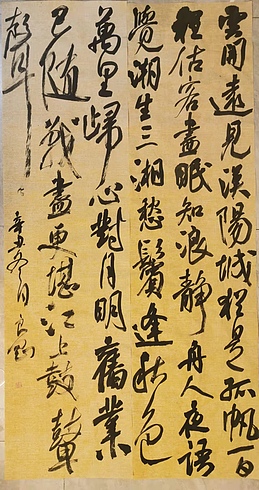 雲開遠見漢陽城猶是孤帆一日
程估客晝眠知浪靜舟人夜語
覺潮生三湘愁鬢逢秋色
萬里歸心對月明舊業
已随戰盡更堪江上鼓鼙
聲
辛丑冬月良